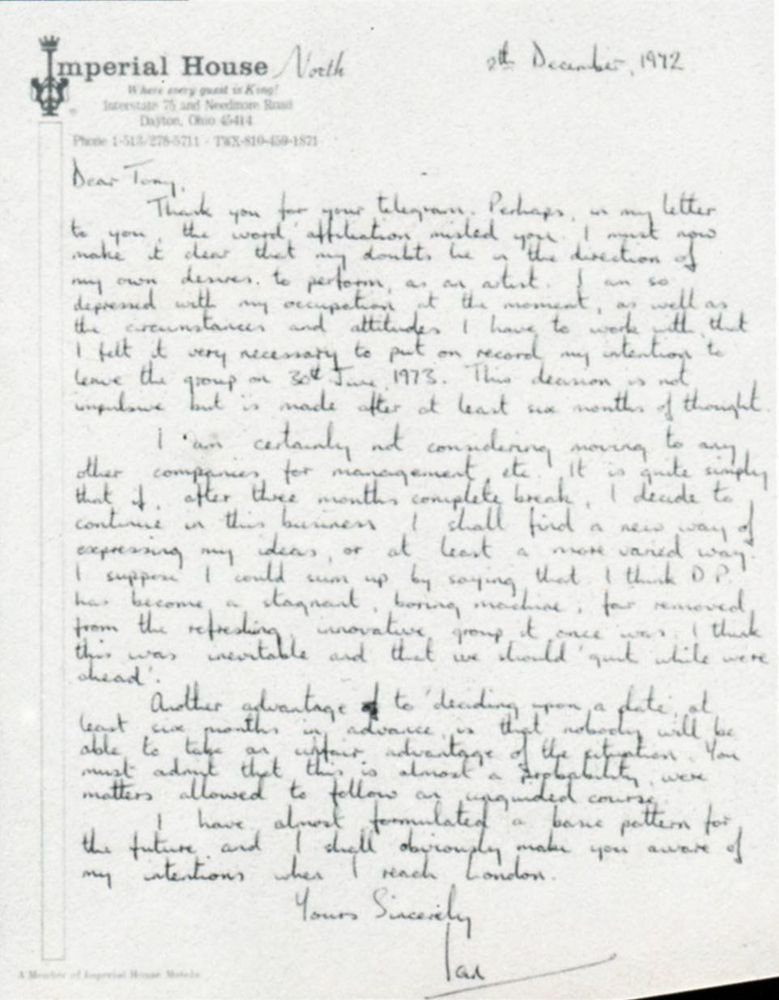 Imperial House North
9th December, 1972
Where every guest is King!
Interstate 75 and Needmore Road
Dayton, Ohio 45414
Phone 1-513/278-5711 - TWX-810-459-1871
Dear Tony,
Thank you for your telegram. Perhaps, in my letter
to you, the word 'affiliation' misled you. I must now
make it clear that my doubts lie in the direction of
my own desires, to perform, as an artist. I am so
depressed with my occupation at the moment, as well as
the circumstances and attitudes I have to work with, that
I felt it very necessary to put on record, my intention to
leave the group on 30th June, 1973. This decision is not
impulsive but is made after at least six months of thought.
I am certainly not considering moving to any
other companies for management, etc. It is quite simply
that if, after three months complete break, I decide to
continue in this business I shall find a new way of
expressing my ideas, or at least a more varied way.
I suppose I could sum up by saying that I think D.P.
has become a stagnant, boring machine, far removed
from the refreshing, innovative group it once was. I think
this was inevitable and that we should 'quit while we're
ahead'.
Another advantage to deciding upon a date, at
least six months in advance, is that nobody will be
able to take an unfair advantage of the situation. You
must admit that this is almost a probability, were
matters allowed to follow an unguided course.
I have almost formulated a basic pattern for
the future, and I shall obviously make you aware of
my intentions when I reach London.
Yours Sincerely
Ian
A Member of Imperial House Motels